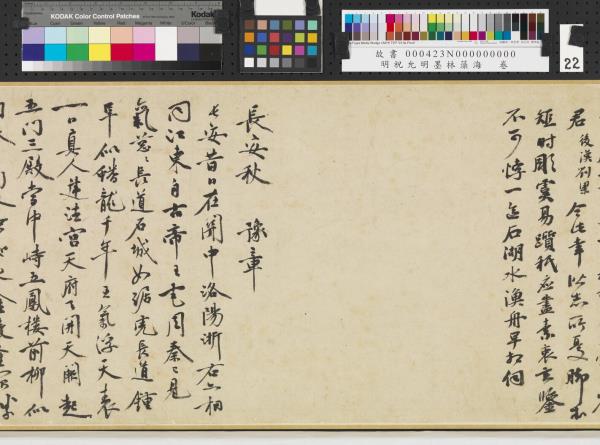 KODAK Color Control Patches
Kodak
故書 000423N000000000
明祝允明墨林藻海 卷
22
君 後漢劉 今此幸以志所憂聊
短時彫蟲易躓秖應盡素衷玄鑒
不可悖一 石湖水漁舟早扣
長安秋 豫章
長安昔日在關中洛陽浙右六相
同江東自古帝王宅周秦之見
氣蔥〻長道石城如踞虎長道鍾
阜似蟠龍千年王氣浮天表
一日真人建法宮天府下開天闕起
五門三殿當中峙五鳳樓前柳似